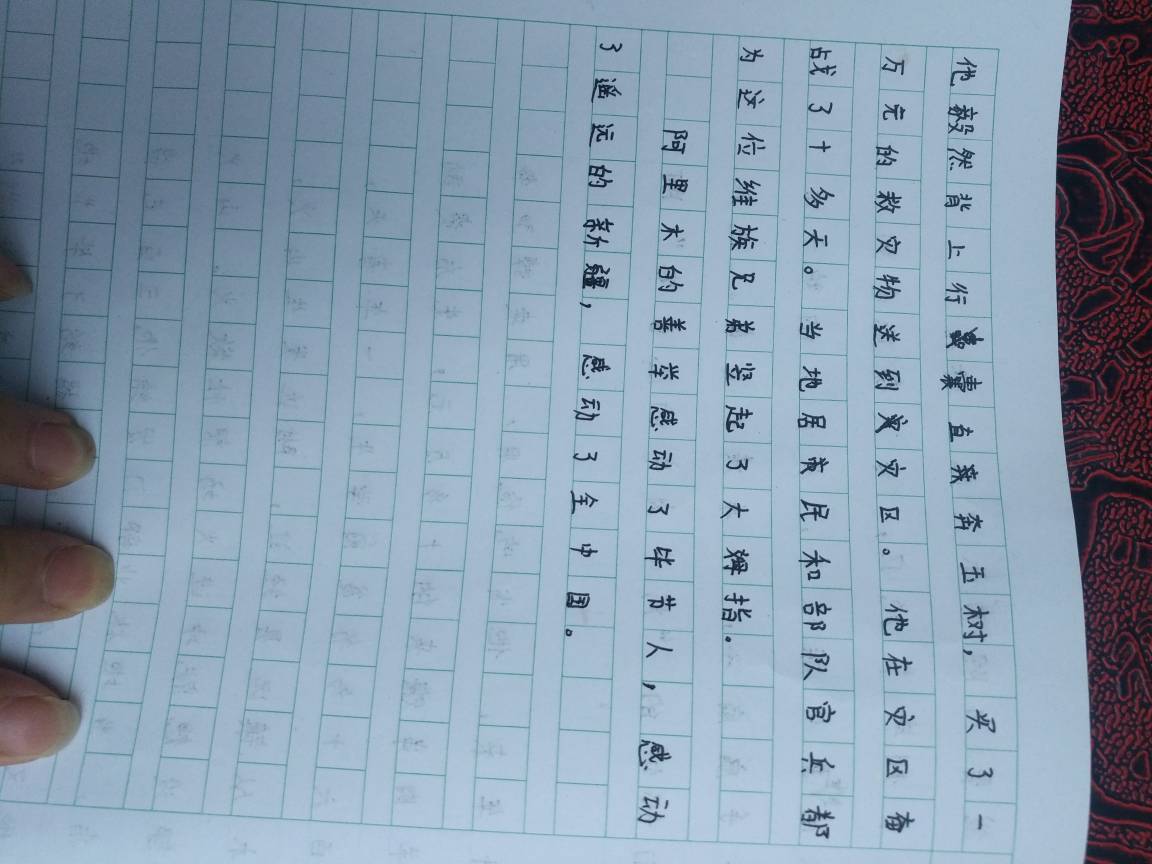 他毅然背上行囊直奔玉树，买了一
万元的救灾物送到灾区。他在灾区奋
战了十多天。当地居民和部队官兵都
为这位维族兄弟竖起了大姆指.
阿里木的善举感动了毕节人，感动
了遥远的新疆，感动了全中国。